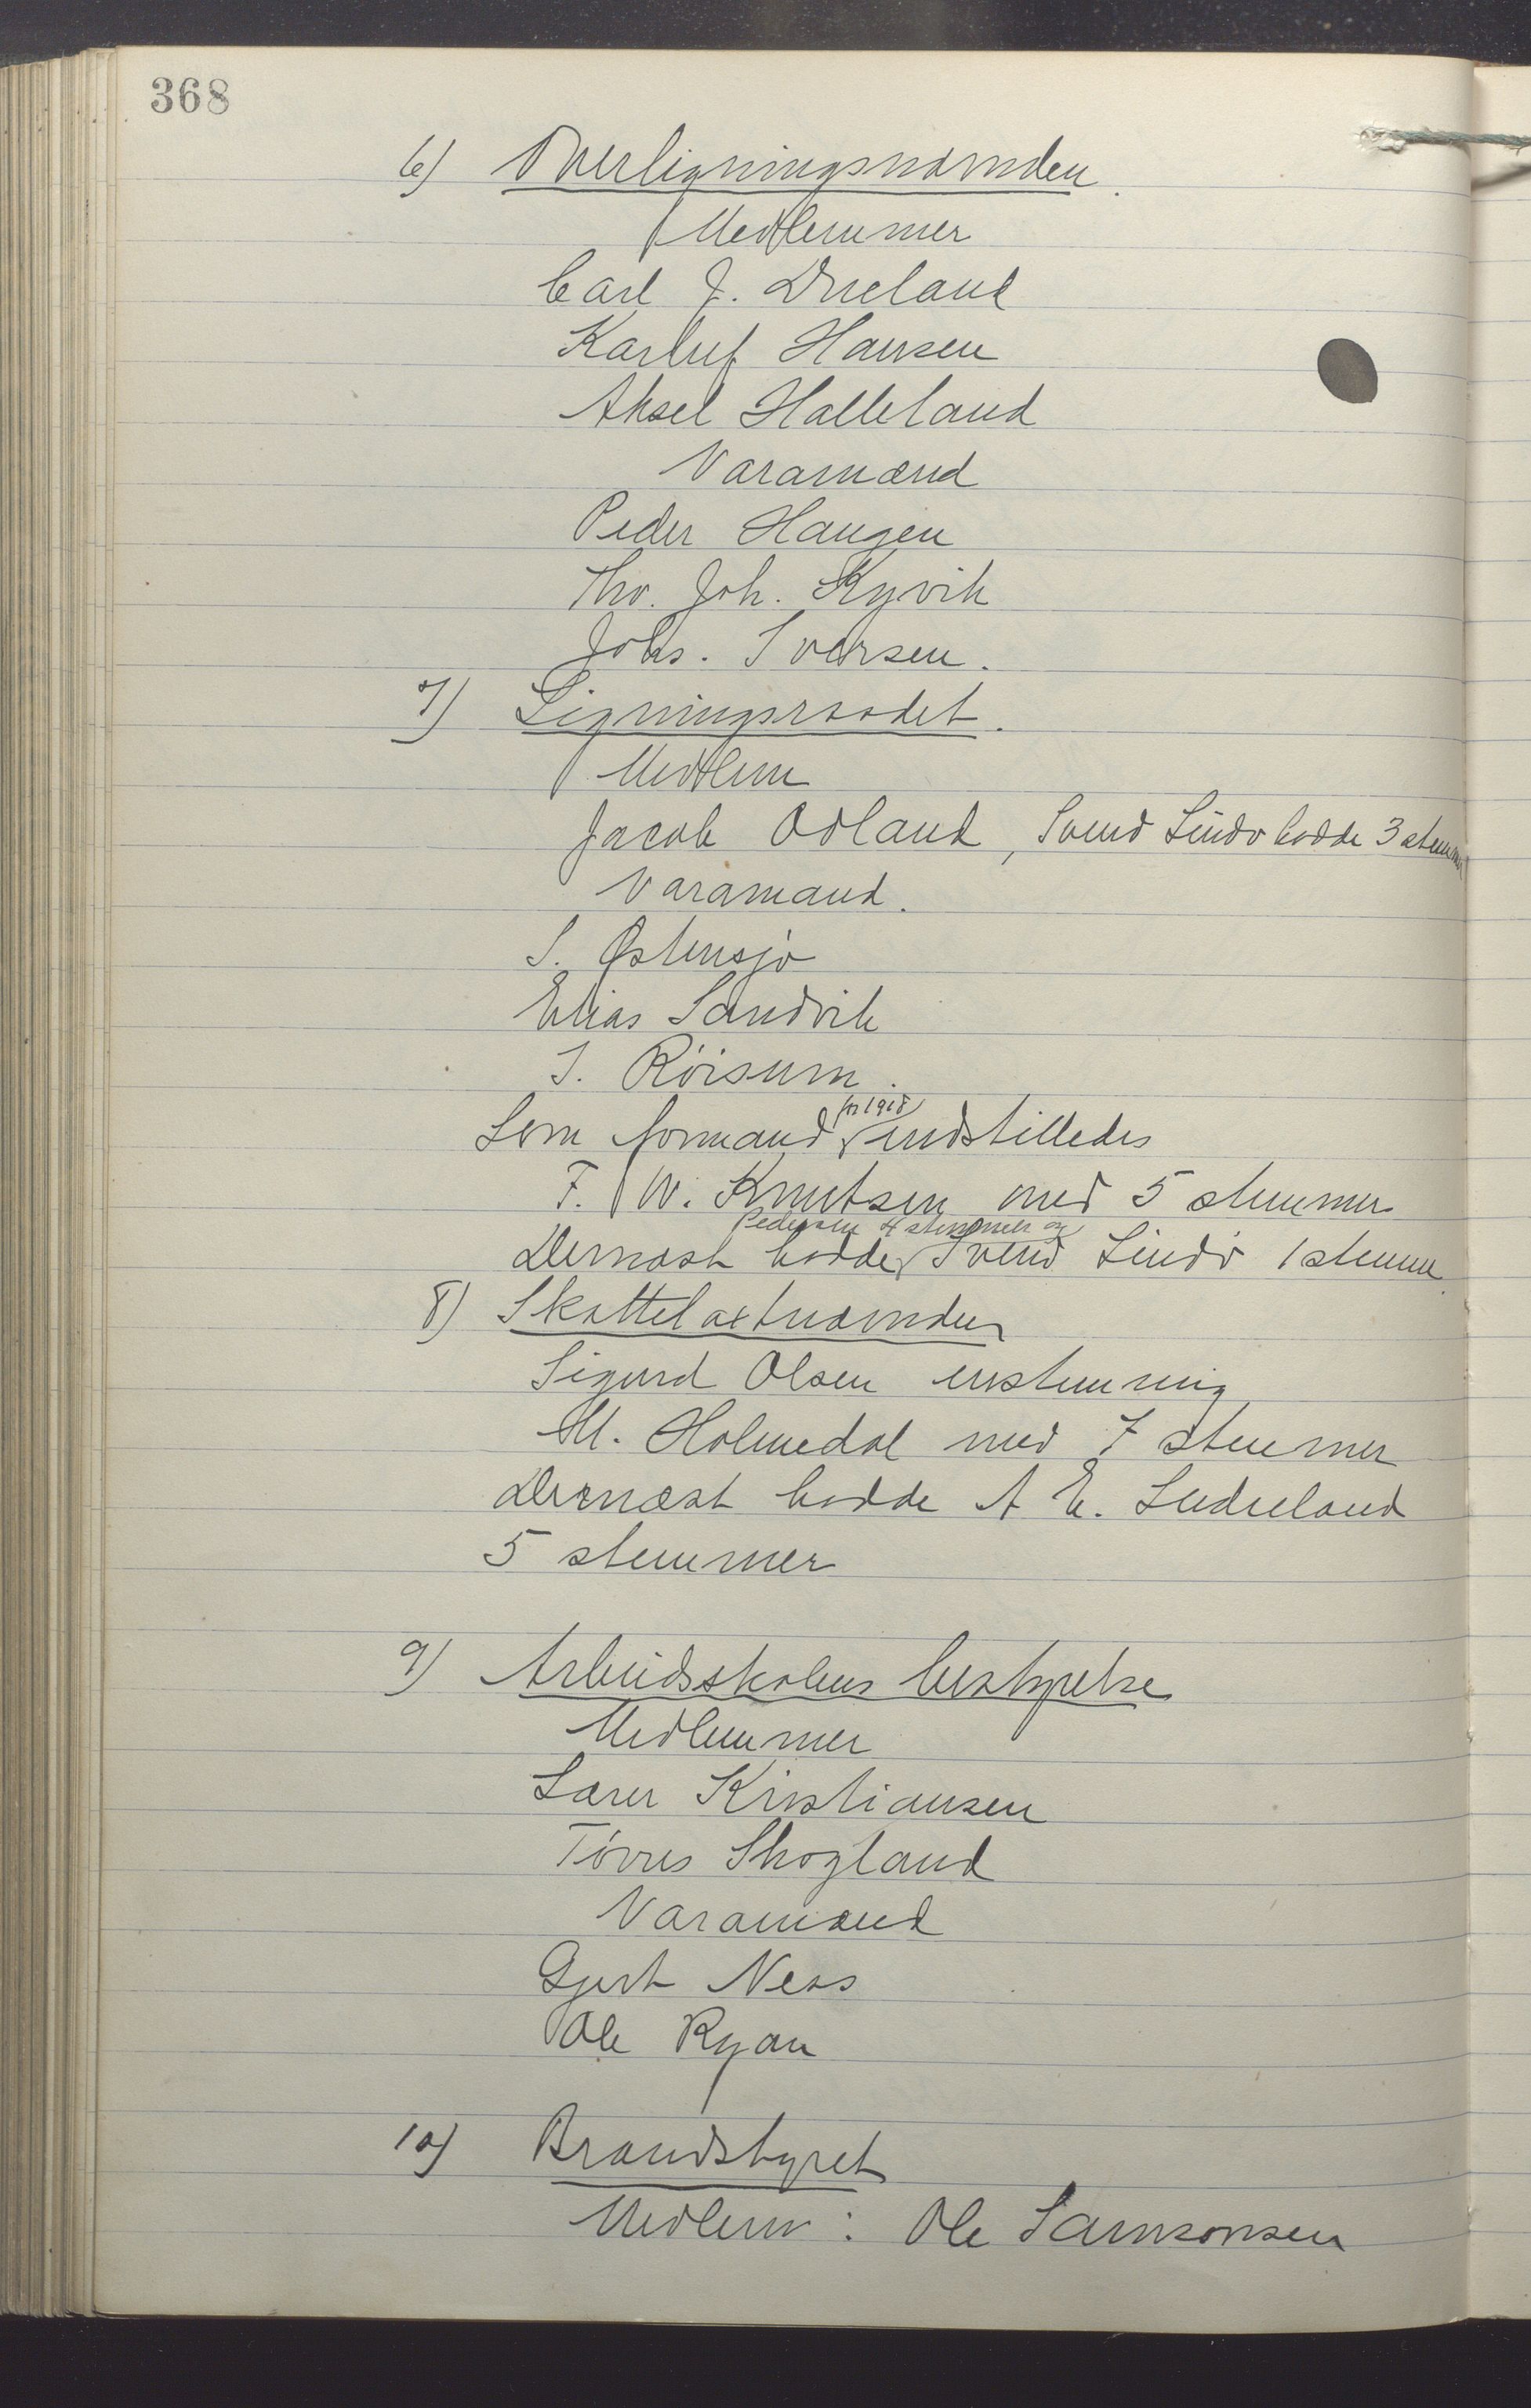 368
6) Overligningsnævnden.
Medlemmer
Carl J. Dueland
Karluf Hansen
Aksel Halleland
Varamænd
Peder Haugen
Thv. Joh. Kyvik
Johs. Iversen.
7) Ligningsraadet.
Medlem
Jacob Odland, Svend Lindø hadde 3 stemmer
Varamand.
S. Østensjø
Elias Sandvik
I. Röisum.
for 1918
Som formand indstilledes
F. W. Knutsen med 5 stemmer
Pedersen 4 stemmer og
Dernæst hadde Svend Lindö 1 stemme.
8) Skattetaxtnævnden
Sigurd Olsen enstemmig
M. Holmedal med 7 stemmer
Dernæst hadde A E.
5 stemmer
9) Arbeidsskolens bestyrelse
Medlemmer
Lærer Kristiansen
Törres Skogland
Varamænd
Gjert Ness
Ole Ryan
10) Brandstyret
Medlem: Ole Samsonsen